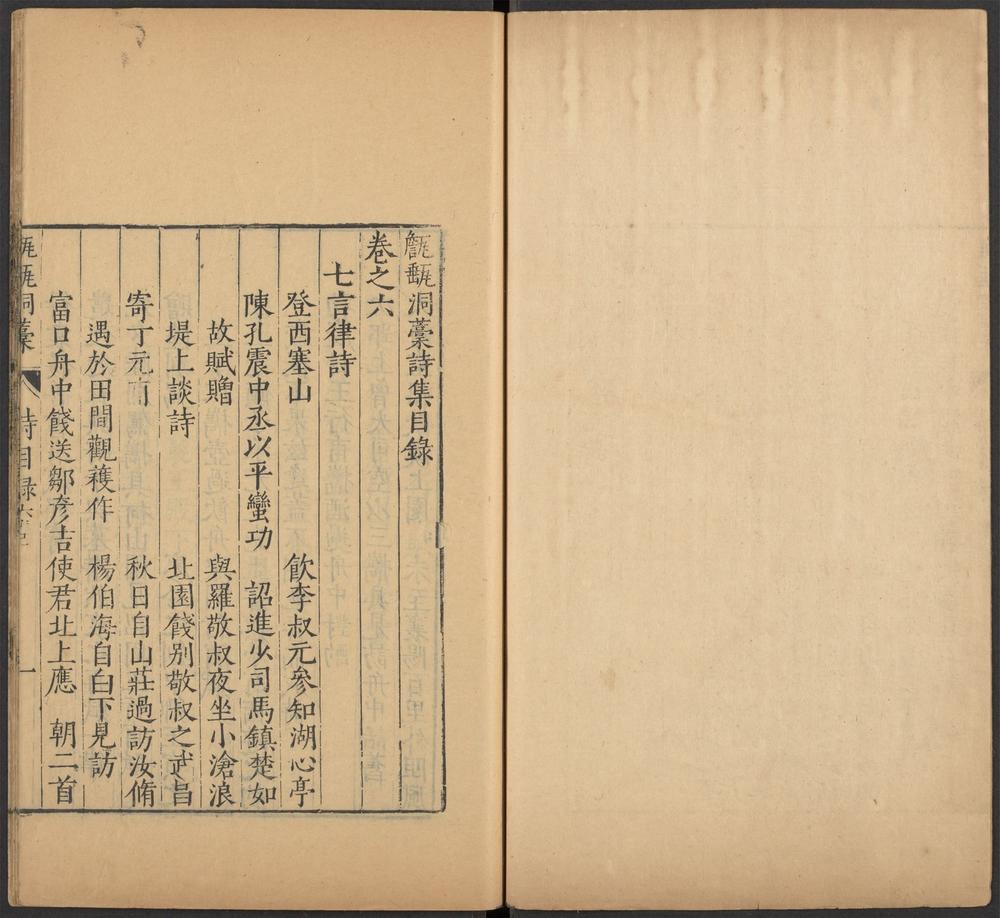 甔甀洞藁詩集目錄
卷之六
七言律詩
登西塞山 飲李叔元參知湖心亭
陳孔震中丞以平蠻功 詔進少司馬鎮楚如
故賦贈 與羅敬叔夜坐小滄浪
堤上談詩 北園餞別敬叔之武昌
寄丁元甫 秋日自山莊過訪汝脩
遇於田間觀穫作 楊伯海自白下見訪
富口舟中餞送鄒彥吉使君北上應 朝二首
洞藁 詩目錄 一